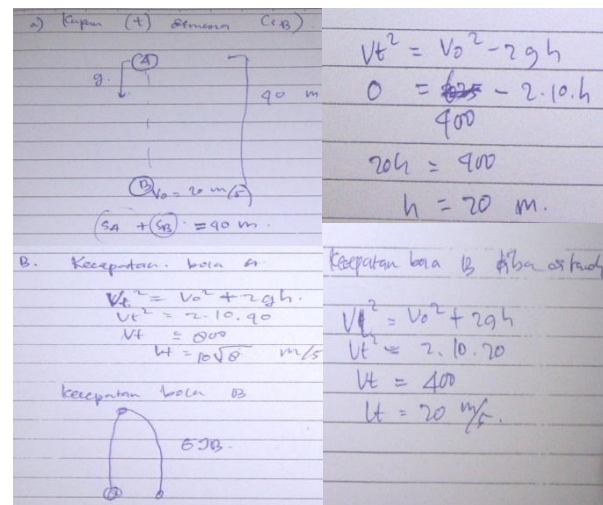 a) Kapan (+) dimana (SB)
A
g.
40 m
B Vo = 20 m/s
SA + SB = 40 m.
B. Kecepatan bola A.
Vt² = Vo² + 2gh.
Vt² = 2.10.40
Vt = 800
Vt = 10√8 m/s
Kecepatan bola B
GJB.
Vt² = Vo² - 2gh
0 = - 2.10.h
400
20h = 400
h = 20 m.
Kecepatan bola B tiba di tanah
Vt² = Vo² + 2gh
Vt² = 2.10.20
Vt = 400
Vt = 20 m/s.